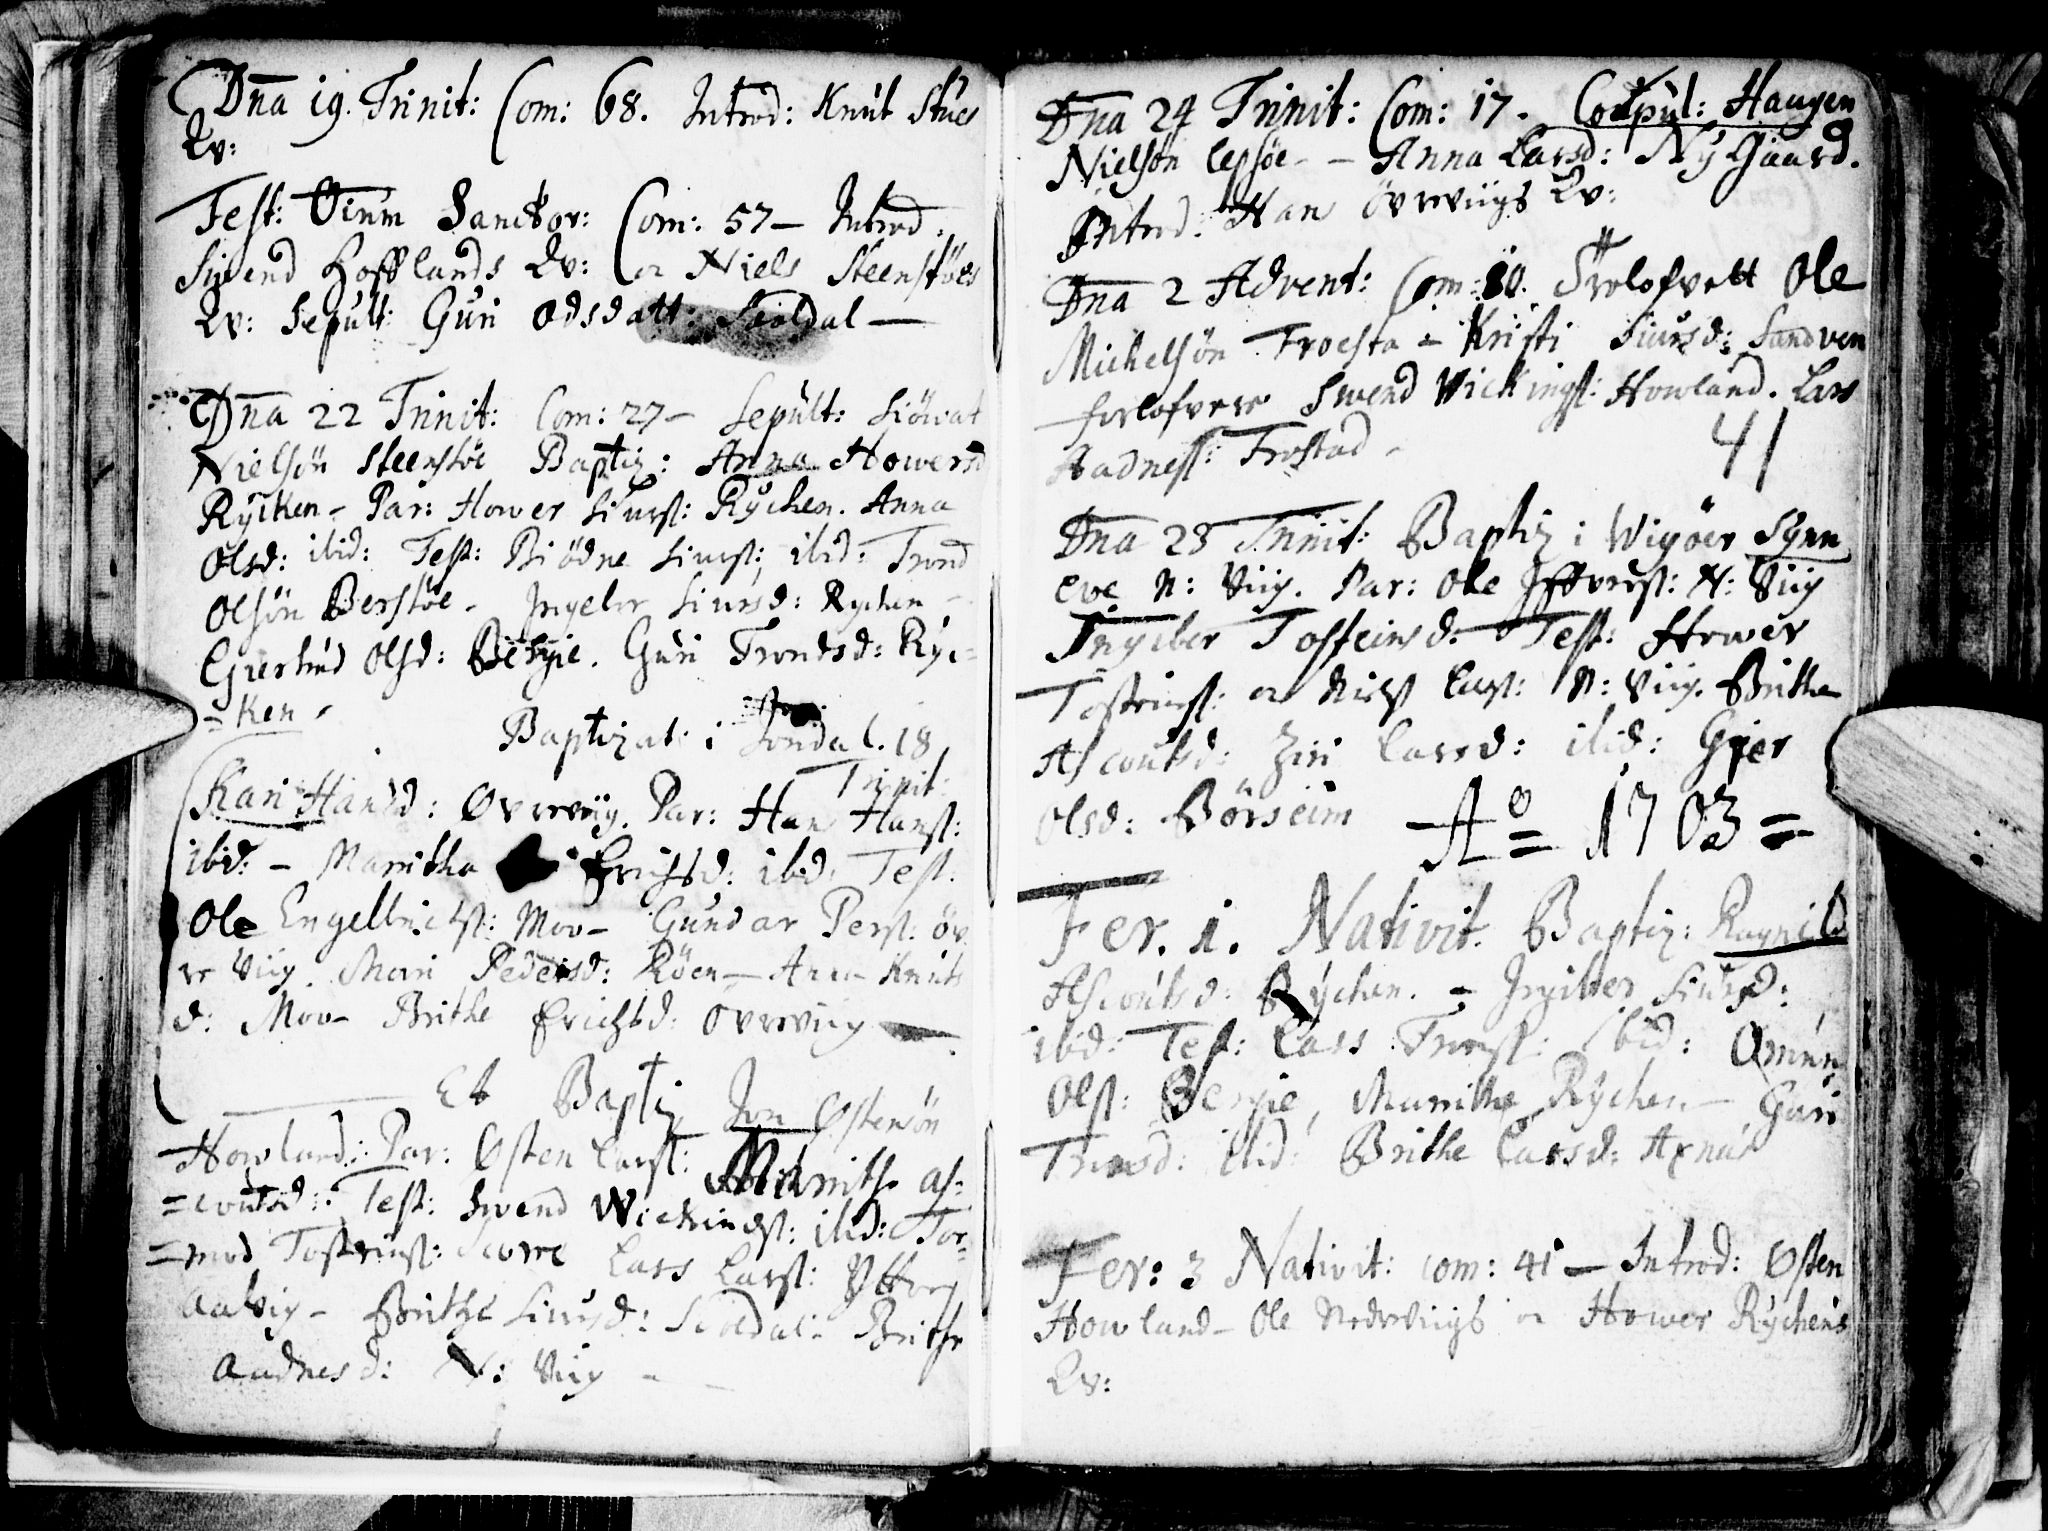 Dna 19. Trinit: Com: 68. Introd: Knut Stues
Qv:
Fest: Oium Sanctor: Com: 57 – Introd.
Siwend Hofflands Qv: oc Niels Steenstöes
Qv: Sepult: Guri Odsdatt: Sioldal –
Dna 22 Trinit: Com: 27 – Sepult: Siöwat
Nielsön Steenstöe Baptiz: Anna Howersd
Rÿcken – Par: Hower Siurs: Rÿchen. Anna
Olsd: ibid: Test: Biödne Siurs: ibid: Trond
Olsön Berstöe – Ingebor Siursd: Rychen –
Giertrud Olsd: Bergie. Guri Trondsd: Rÿc=
=ken –
Baptizat: i Jondal. 18
Trinit:
Kari Hansd: Øvreviig. Par: Hans Hanss:
ibid: – Marritha Erichsd: ibid: Test.
Ole Engelbricts: Mov – Gundar Pers: öv
re Viig. Mari Pedersd: Röen – Anna Knuts
d: Mov – Brithe Erichsd: Øvreviig
Et Baptiz Jon Østensön
Howland: Par: Østen Lars: Marrithe As=
=coutsd: Test: Swend Wickings: ibid: Tor=
=mod Tosteins: Lars Lars: Yttre
Aalvig – Brithe Siursd: Sioldal – Brithe
Audnesd: N: Viig –
Dna 24 Trinit: Com: 17. Copul: Haugen
Nielsön Lepsöe – – Anna Larsd: NÿGaard.
Introd: Hans Övreviigs Qv:
Dna 2 Advent: Com: 80. Trolofvett Ole
Michelsön Troesta – Kristi Siursd: Sandven
forlofvere Swend Wickings: Howland. Lars
Aadness: Trostad –
41
Dna 23 Trinit: Baptiz i Wigöer Sÿnn
eve N: Viig. Par: Ole N: Viig
Ingeber Tosteinsd: – Test: Hower
Tosteins: oc Niels Lars: N: Viig. Brithe
Ascoutsd: Ziri Larsd: ibid: Gier
Olsd: Börseim Ao = 1703 =
Fer. 1. Nativit. Baptiz: Ragnild
Ascoutsd: Rÿchen. – Ingeber Siursd:
ibid: Test: Lars Trons: ibid: Omun
Ols: Bergie, Marrithe Rÿchen – Guri
Tronsd: ibid: Brithe Larsd:
Fer: 3 Nativit: com: 41 – Introd: Østen
Howland – Ole Nedreviigs oc Hower Rÿchens
Qv: